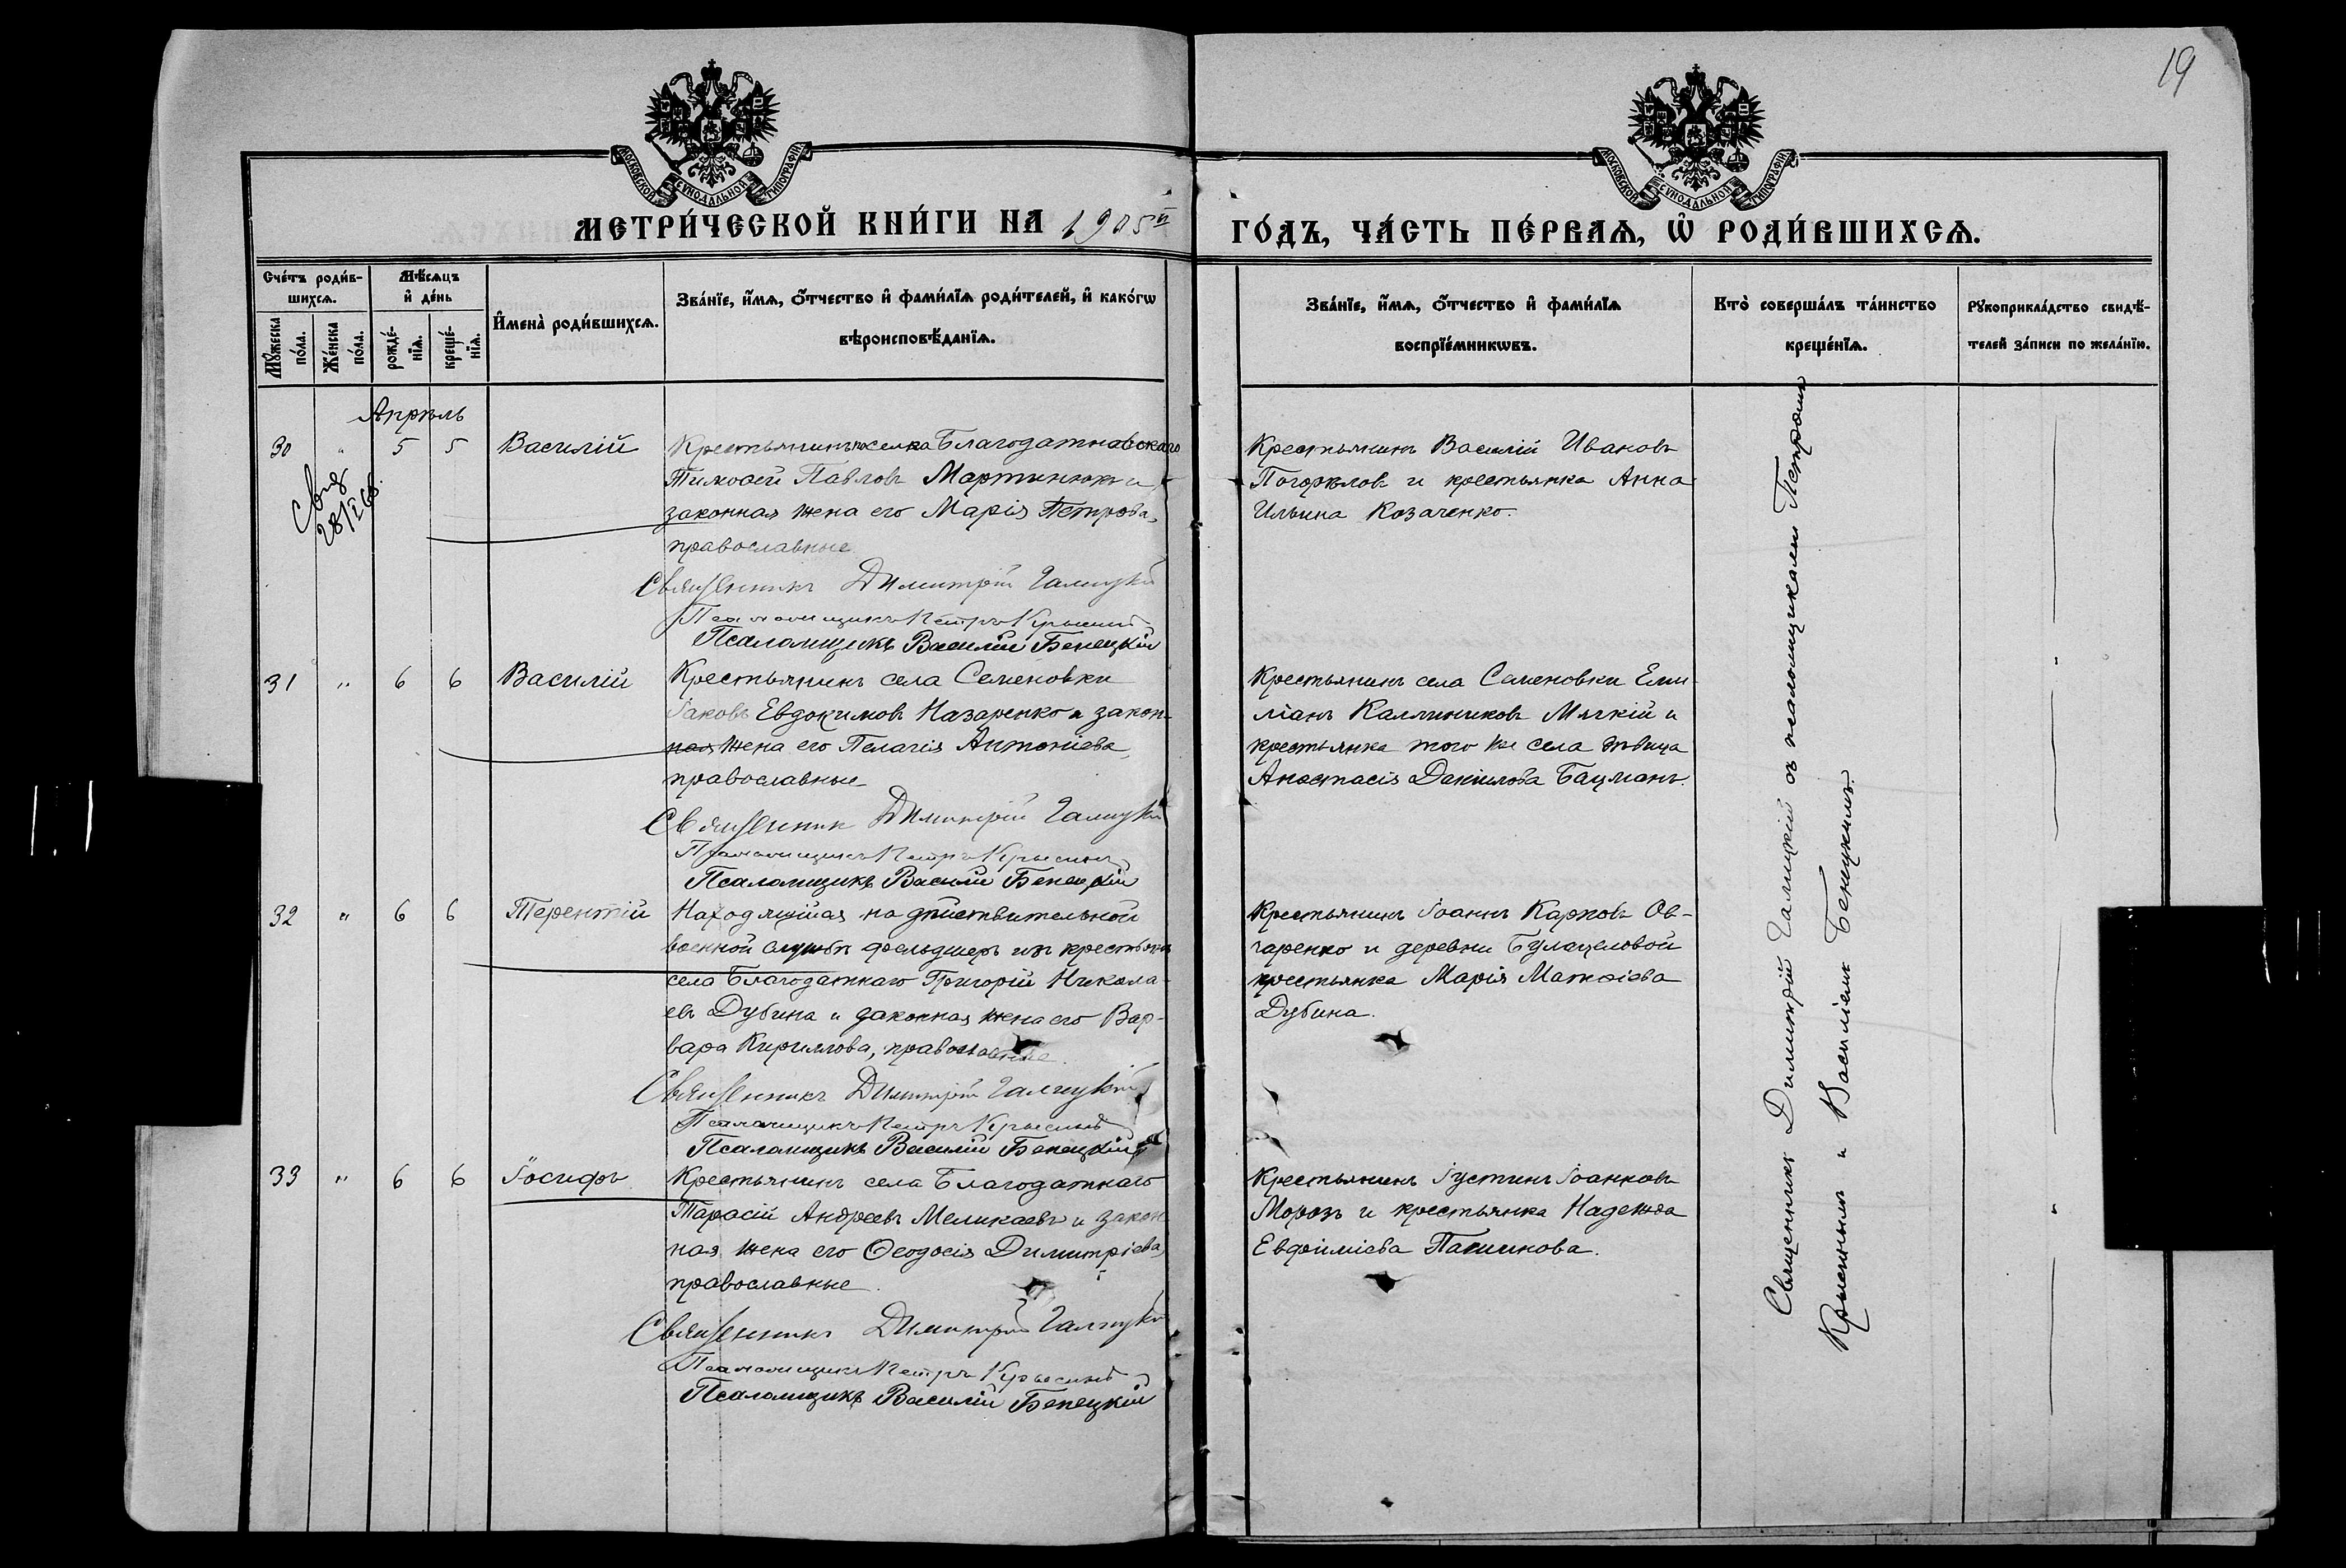 19
МОСКОВСКОЙ СѴНОДАЛЬНОЙ ТИПОГРАФІИ
МОСКОВСКОЙ СѴНОДАЛЬНОЙ ТИПОГРАФІИ
МЕТРИ́ЧЕСКОЙ КНИ́ГИ НА 1905й ГО́ДЪ, ЧА́СТЬ ПЕ́РВАѦ, Ѡ҆ РОДИ́ВШИХСѦ.
Сче́тъ роди́в-
шихсѧ.
Мꙋ́жеска по́ла.
Же́нска по́ла.
Мѣ́сѧцъ
и҆ де́нь
рожде́-
нїѧ.
креще́-
нїѧ.
И҆мена̀ роди́вшихсѧ.
Зва́нїе, и҆́мѧ, ѻ҆́тчество и҆ фами́лїѧ роди́телей, и҆ како́гѡ
вѣроисповѣ́данїѧ.
Зва́нїе, и҆́мѧ, ѻ҆́тчество и҆ фами́лїѧ
воспрїе́мникѡвъ.
Кто̀ соверша́лъ та́инство
креще́нїѧ.
Рꙋкоприкла́дство свидѣ́-
телей за́писи по жела́нїю.
Апрѣль
30 " 5 5 Василій
Свид
28/I 66.
Крестьянинъ поселка Благодатновскаго
Тимоѳей Павловъ Мартинюкъ и
законная жена его Марія Петрова,
православные
Священникъ Димитрій Галицкій
Псаломщикъ Петръ Крысинъ
Псаломщикъ Василій Бенецкій
Крестьянинъ Василій Ивановъ
Погорѣловъ и крестьянка Анна
Ильина Козаченко.
31 " 6 6 Василій
Крестьянинъ села Семеновки
Іаковъ Евдокимовъ Назаренко и закон-
ная жена его Пелагія Антоніева,
православные
Священник Димитрій Галицкій
Псаломщикъ Петръ Крысинъ
Псаломщикъ Василій Бенецкій
Крестьянинъ села Семеновки Еми-
ліанъ Каллиниковъ Мягкій и
крестьянка того же села дѣвица
Анастасія Даніилова Бацманъ.
32 " 6 6 Терентій
Находящійся на дѣйствительной
военной службѣ фельдшеръ изъ крестьянъ
села Благодатнаго Григорій Никола-
евъ Дубина и законная жена его Вар-
вара Кириллова, православные.
Священникъ Димитрій Галицкій
Псаломщикъ Петръ Крысинъ
Псаломщикъ Василій Бенецкій
Крестьянинъ Іоаннъ Карповъ Ов-
чаренко и деревни Булацеловой
крестьянка Марія Матѳіева
Дубина.
33 " 6 6 Іосифъ
Крестьянинъ села Благодатнаго
Тарасій Андреевъ Меликаевъ и закон-
ная жена его Ѳеодосія Димитріева,
православные.
Священникъ Димитрій Галицкій
Псаломщикъ Петръ Крысинъ
Псаломщикъ Василій Бенецкій
Крестьянинъ Іустинъ Іоанновъ
Морозъ и крестьянка Надежда
Евфиміева Пашинова.
Священникъ Димитрій Галицкій съ псаломщиками Петромъ
Крысинымъ и Василіемъ Бенецкимъ.